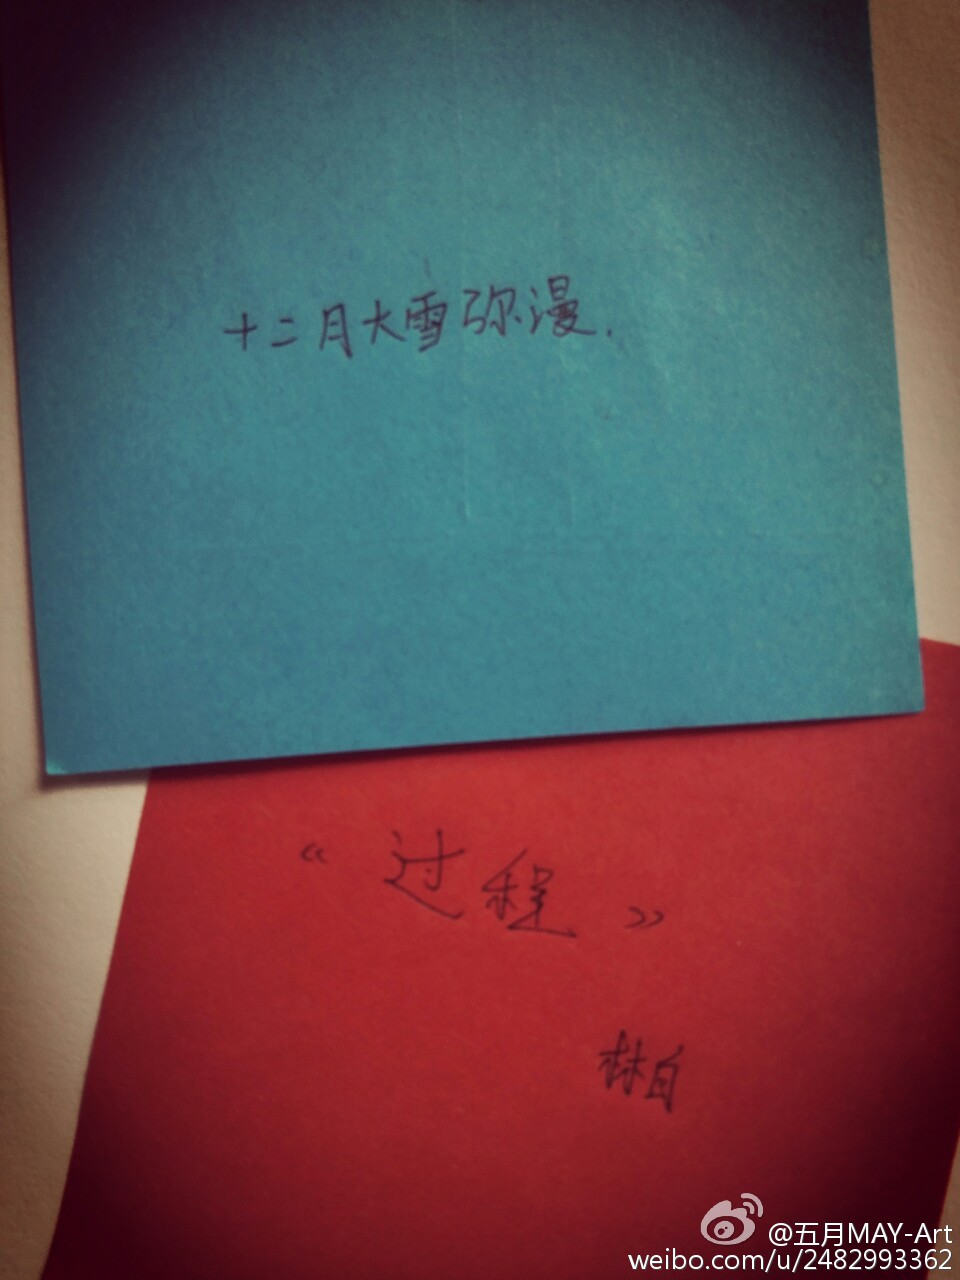 十二月大雪弥漫.
《过程》
林白
@五月MAY-Art
weibo.com/u/2482993362